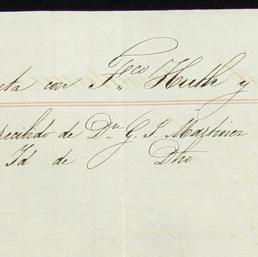 ta con Fco Huth y
recibido de Dn G. J. Martinez
Id de Dho